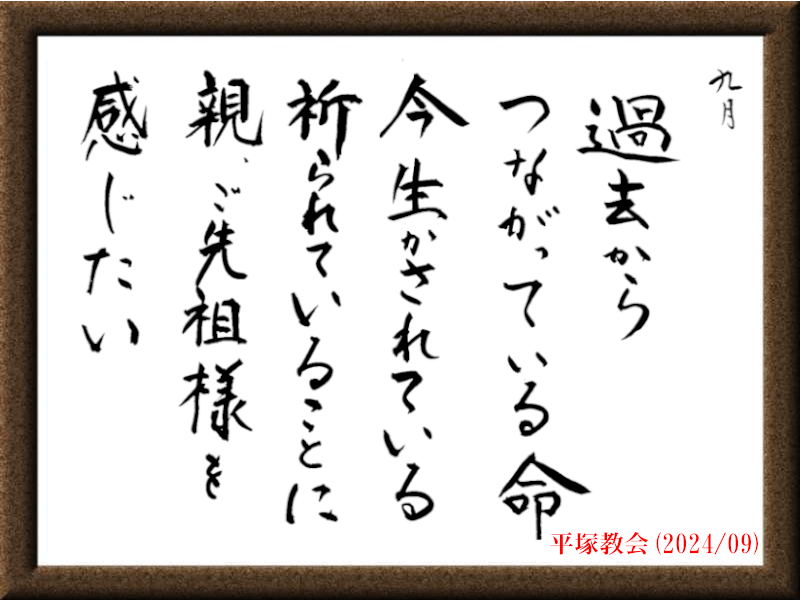 九月
過去から
つながっている命
今生かされている
祈られていることに
親、ご先祖様を
感じたい
平塚教会(2024/09)